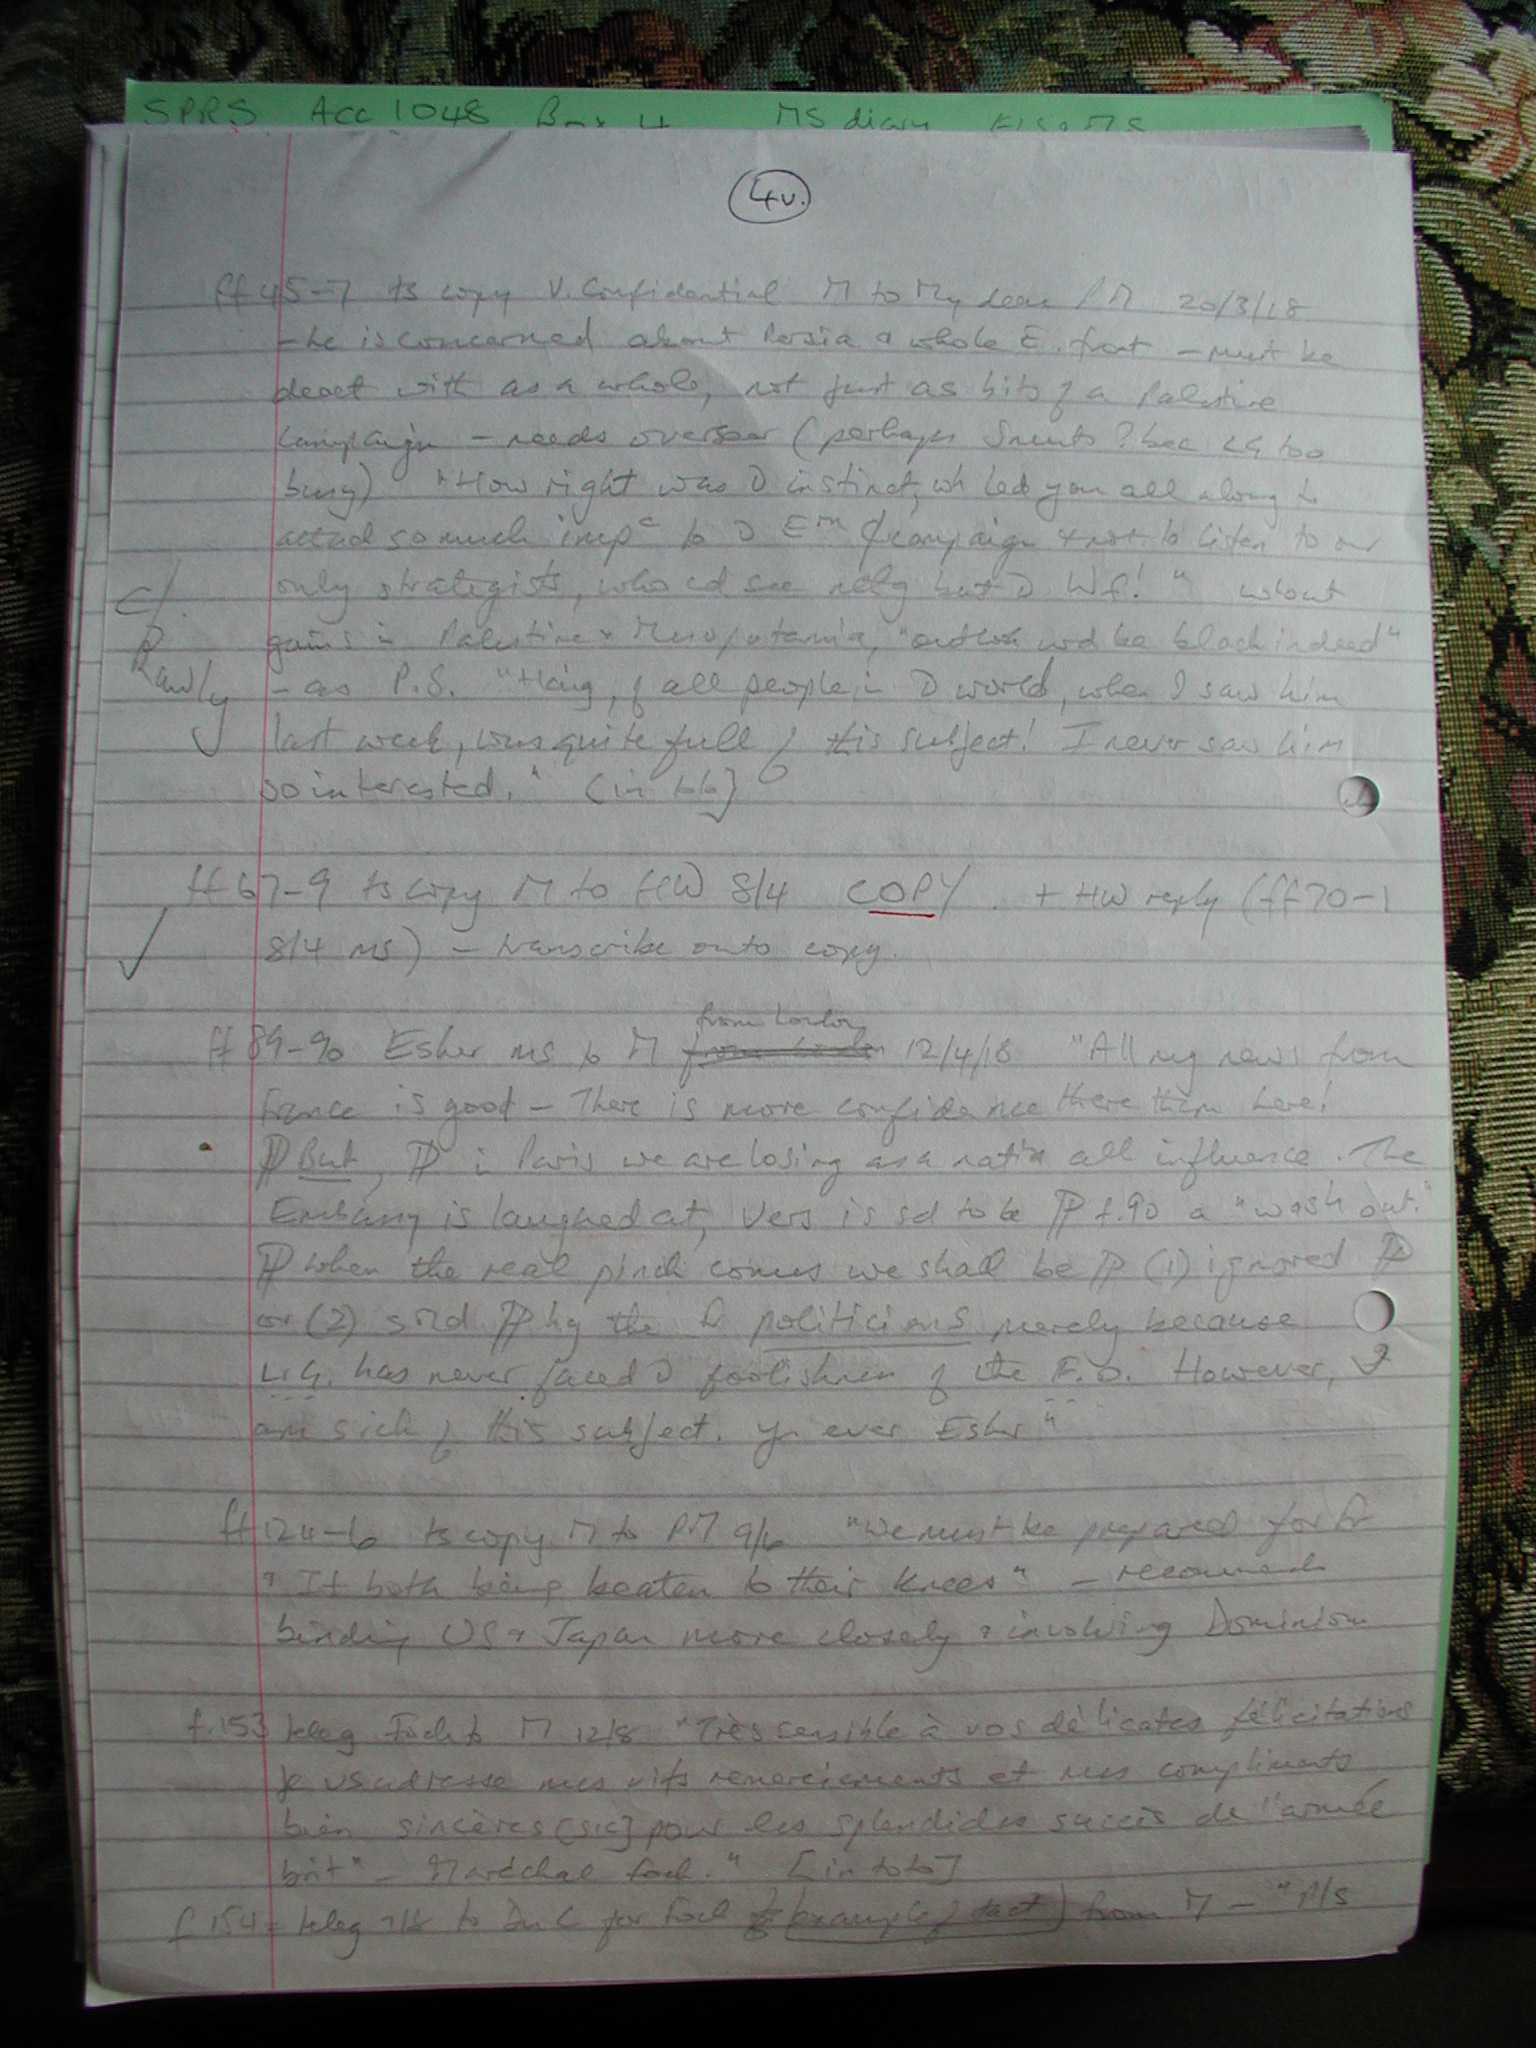 SPRS Acc 1048 Box 4 MS diary
4v.
ff 45-7 ts copy V. Confidential M to My dear PM 20/3/18
- he is concerned about Persia & whole E. front - must be
dealt with as a whole, not just as bits of a Palestine
campaign - needs overseer (perhaps Smuts? bec LG too
busy) "How right was D instinct, wh led you all along to
attach so much imp^c to D E^rn campaign & not to listen to our
only strategists, who cd see nthg but D Wf!" w'out
gains in Palestine & Mesopotamia, "outlook wd be black indeed"
c/.
Rawly
- as P.S. "Haig, of all people in D world, when I saw him
last week, was quite full of this subject! I never saw him
so interested." [in toto]
ff 67-9 ts copy M to HW 8/4 COPY. + HW reply (ff 70-1
8/4 ms) - transcribe onto copy.
from London
ff 89-90 Esher ms to M 12/4/18 "All my news from
France is good - There is more confidence there than here!
But, in Paris we are losing as a nat'n all influence. The
Embassy is laughed at, Vers is sd to be f.90 a "wash out."
when the real pinch comes we shall be (1) ignored
or (2) sold by the politicians merely because
L.G. has never faced D foolishness of the F.O. However, I
am sick of this subject. Yr ever Esher"
ff 124-6 ts copy M to PM 9/6 "We must be prepared for Fr
& It both being beaten to their knees" - recommends
binding US & Japan more closely & involving Dominion
f.153 teleg Foch to M 12/8 "Très sensible à vos délicates félicitations
je vs adresse mes vifs remerciements et mes compliments
bien sincères [sic] pour les splendides succès de l'armée
brit" - Maréchal Foch." [in toto]
f.154 = teleg to for Foch (example of tact) from M - "P/S